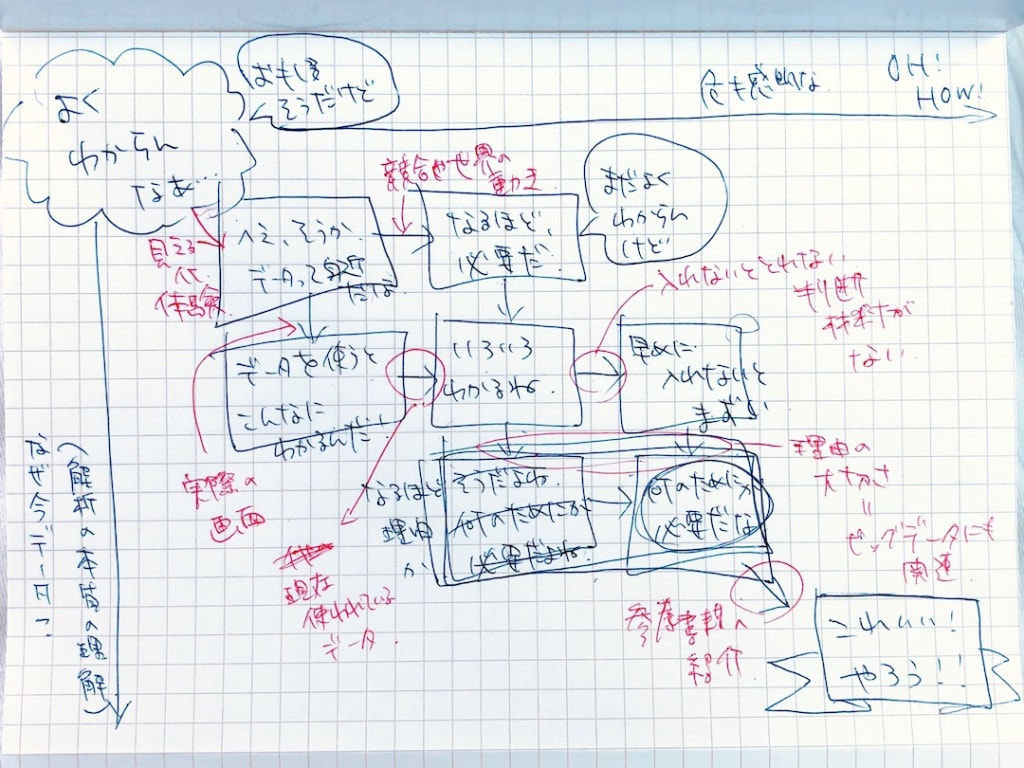 よく
わからん
なあ…
おもしろ
そうだけど
OH!
HOW!
競合や世界の
動き
へえ、そうか
データって身近
だな
なるほど、
必要だ
まだよく
わからん
けど
見える
体験
入れないととれない
がない
データを使うと
こんなに
わかるんだ!
いろいろ
わかるね
早めに
入れないと
まずい
実際の
画面
なるほど
理由
か
そうだよね
何のためにか
必要だよね
何のためにか
必要だな
理由の
大切さ
=
ビッグデータにも
関連
現在
使われている
データ
参考書籍の
紹介
これいい!
やろう!!
なぜ今データ?
(解析の本質の理解)